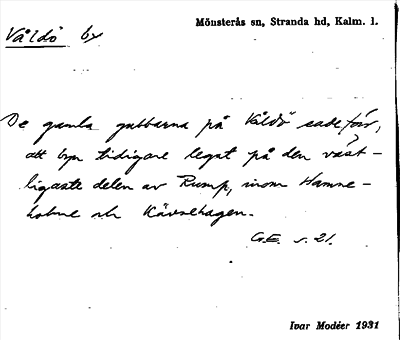 Mönsterås sn, Stranda hd, Kalm. l.
Våldö by
De gamla gubbarna på Våldö sade förr,
att byn tidigare legat på den väst-
ligaste delen av Rump, inom Hamne-
holme och Kävsehagen.
G.E. s. 21.
Ivar Modéer 1931